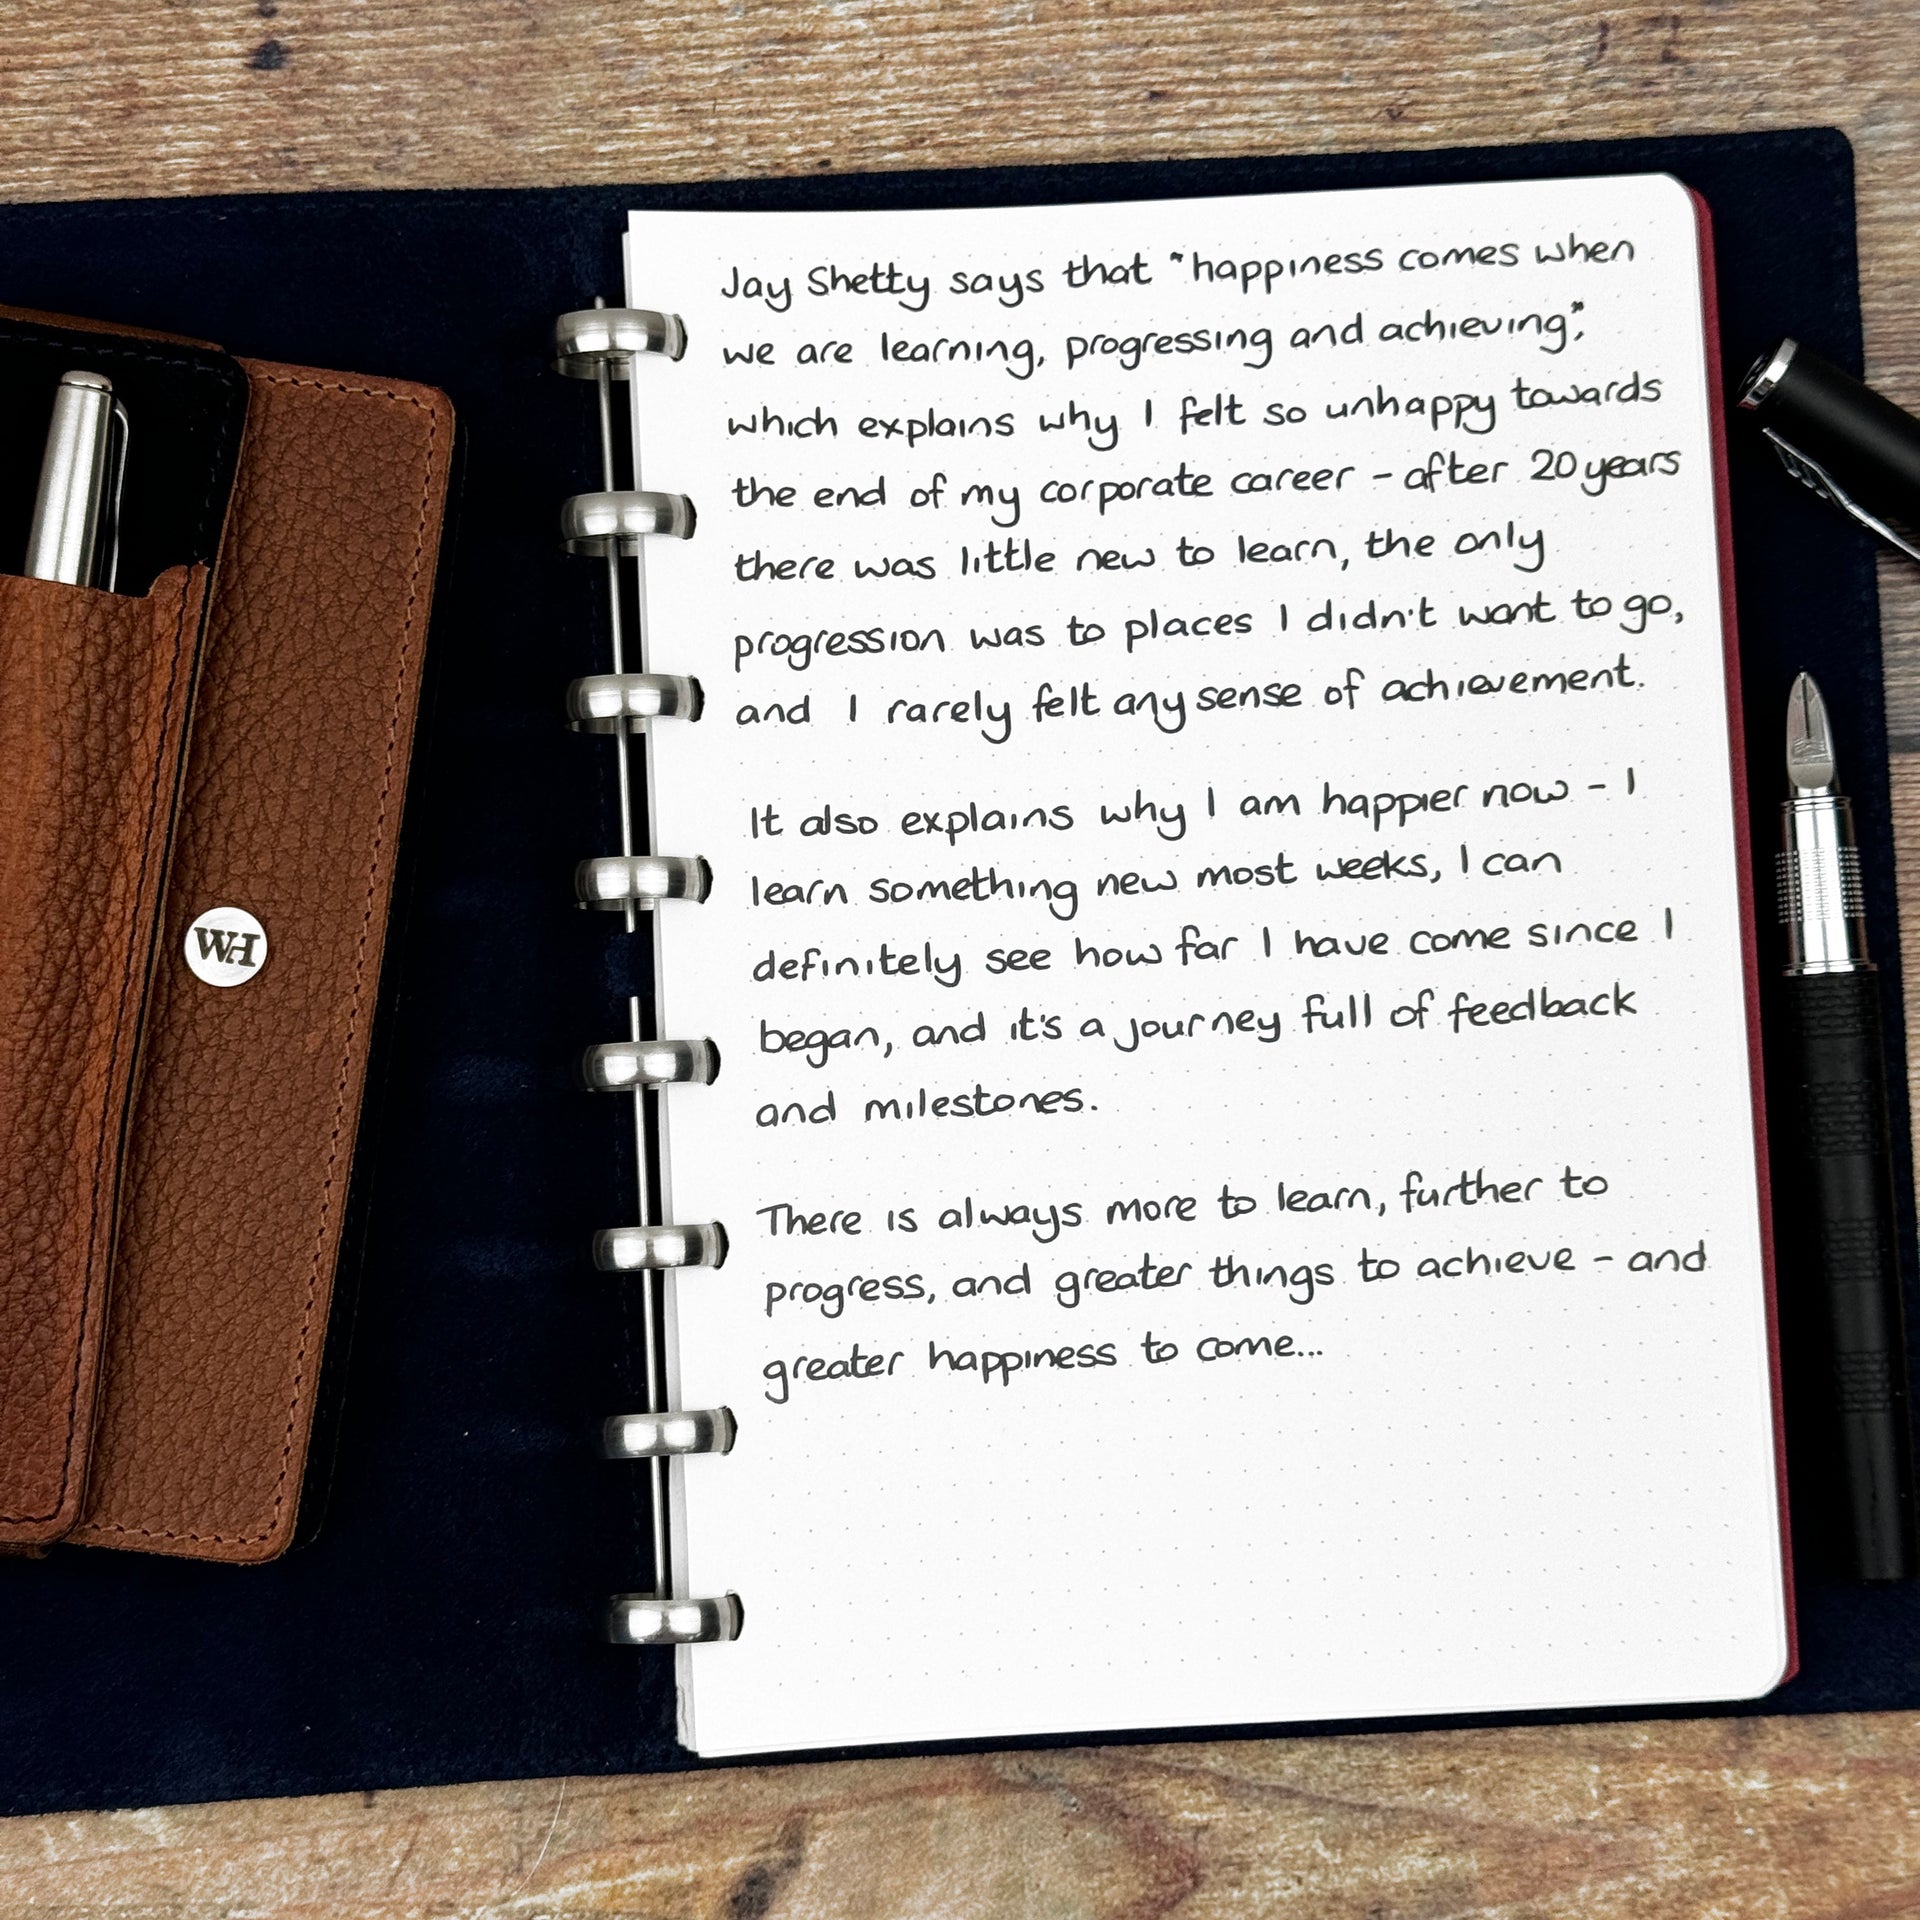 Jay Shetty says that "happiness comes when
we are learning, progressing and achieving",
which explains why I felt so unhappy towards
the end of my corporate career - after 20 years
there was little new to learn, the only
progression was to places I didn't want to go,
and I rarely felt any sense of achievement.
It also explains why I am happier now - I
learn something new most weeks, I can
definitely see how far I have come since I
began, and it's a journey full of feedback
and milestones.
There is always more to learn, further to
progress, and greater things to achieve - and
greater happiness to come...
WH